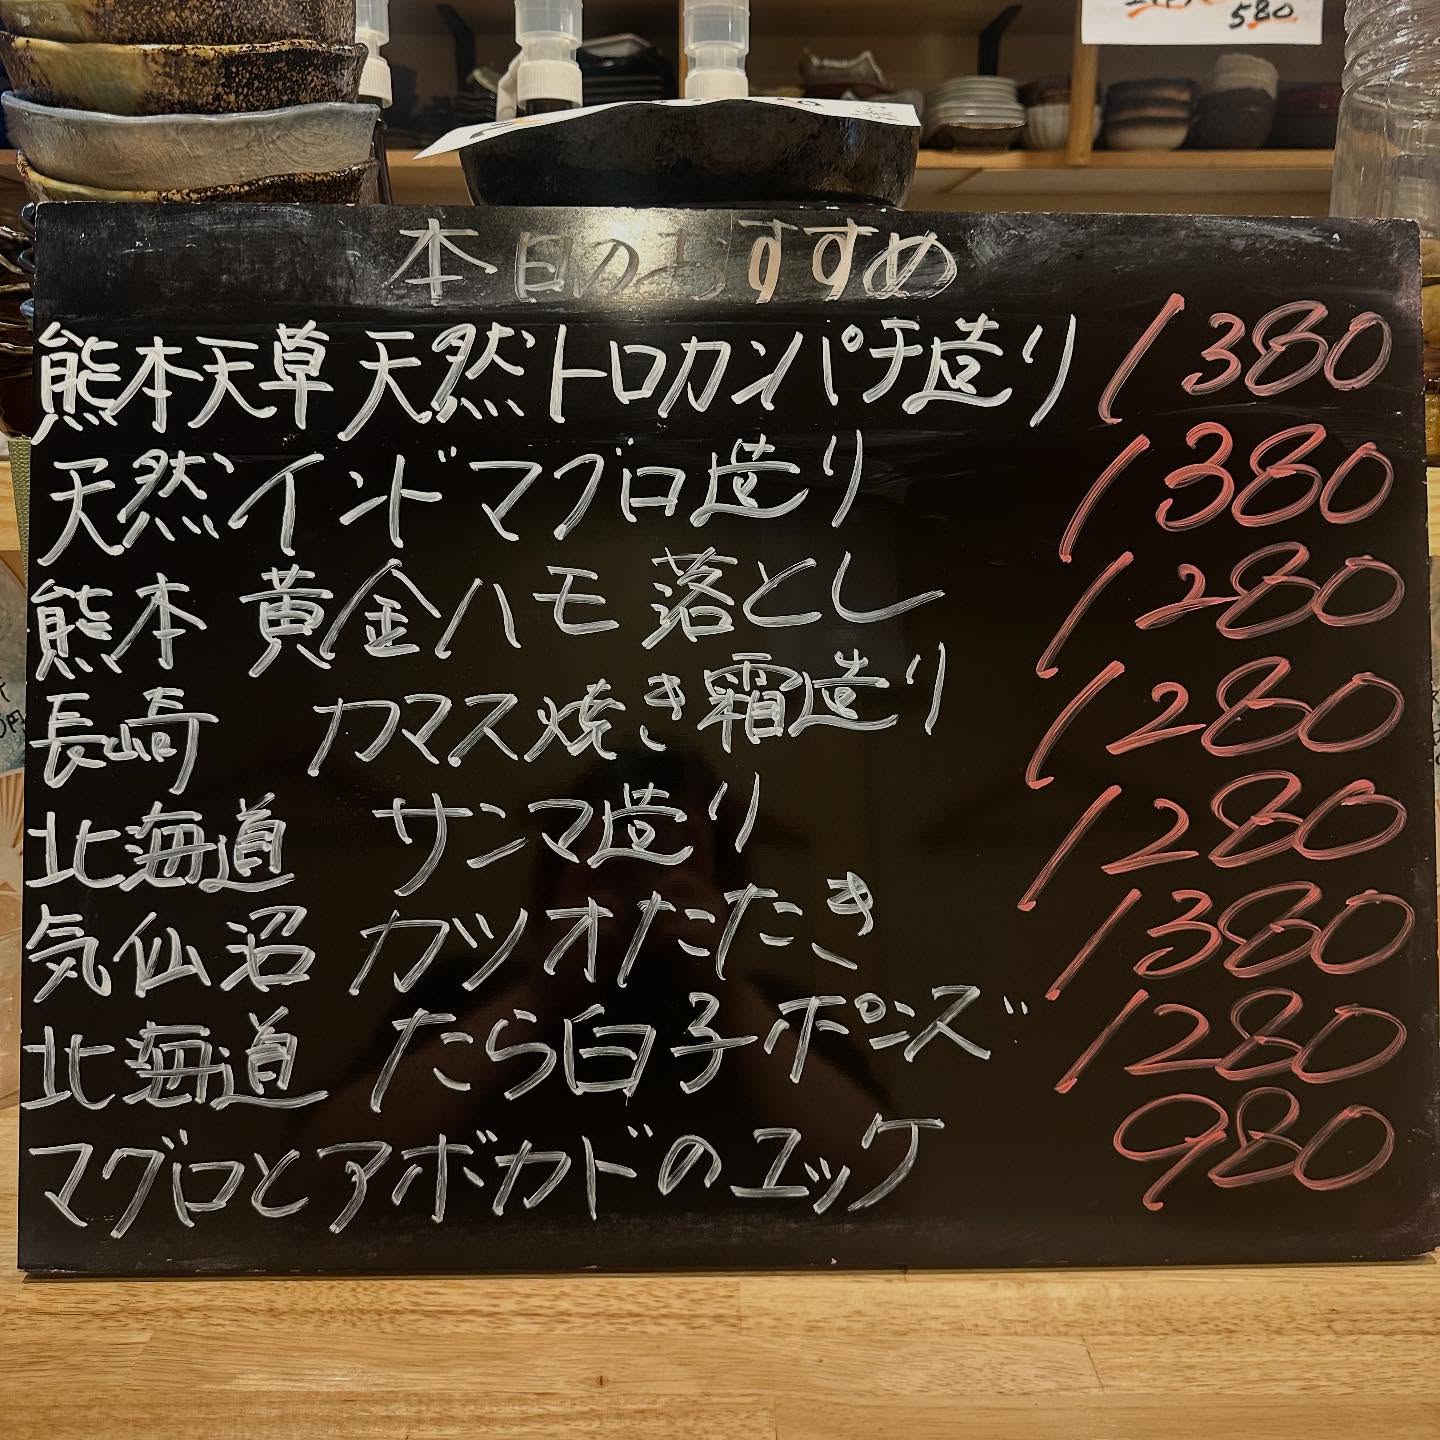 580
本日のおすすめ
熊本天草 天然トロカンパチ造り 1380
天然インドマグロ造り 1380
熊本 黄金ハモ 落とし 1280
長崎 カマス焼き霜造り 1280
北海道 サンマ造り 1280
気仙沼 カツオたたき 1380
北海道 たら白子ポンズ 1280
マグロとアボカドのユッケ 980